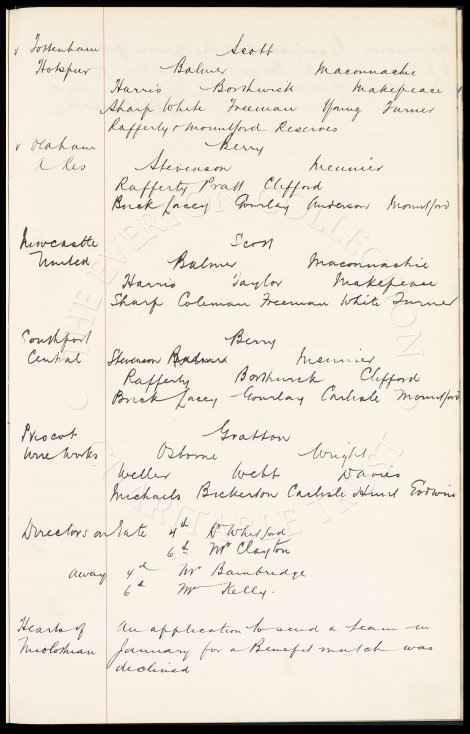 v Tottenham Scott
Hotspur Balmer Maconnachie
Harris Borthwick Makepeace
Sharp White Freeman Young Turner
Rafferty & Mountford Reserves
v Oldham Berry
A Res Stevenson Meunier
Rafferty Pratt Clifford
Buck Lacey Gourlay Anderson Mountford
Newcastle Scott
United Balmer Maconnachie
Harris Taylor Makepeace
Sharp Coleman Freeman White Turner
Southport Berry
Central Stevenson Meunier
Rafferty Borthwick Clifford
Buck Lacey Gourlay Carlisle Mountford
Prescot Gratton
Wire Works Osborne Wright
Weller Webb Davies
Michaels Bickerson Carlisle Hurst
Directors on Gate 4th Dr Whitford
6th Mr Clayton
Away 4th Mr Bainbridge
6th Mr Kelly.
Hearts of An application to send a team in
Midlothian January for a Benefit match was
declined
THE EVERTON COLLECTION
CHARITABLE TRUST